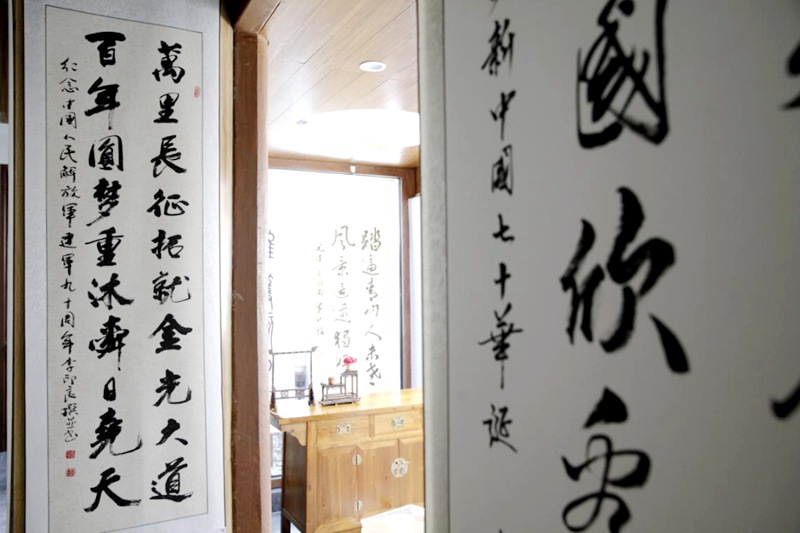 萬里長征拓就金光大道
百年圓夢重沐舜日堯天
纪念中國人民解放軍建軍九十周年李印良撰並书
踏遍青山人未老
風景這邊獨
國欣
新中國七十華誕